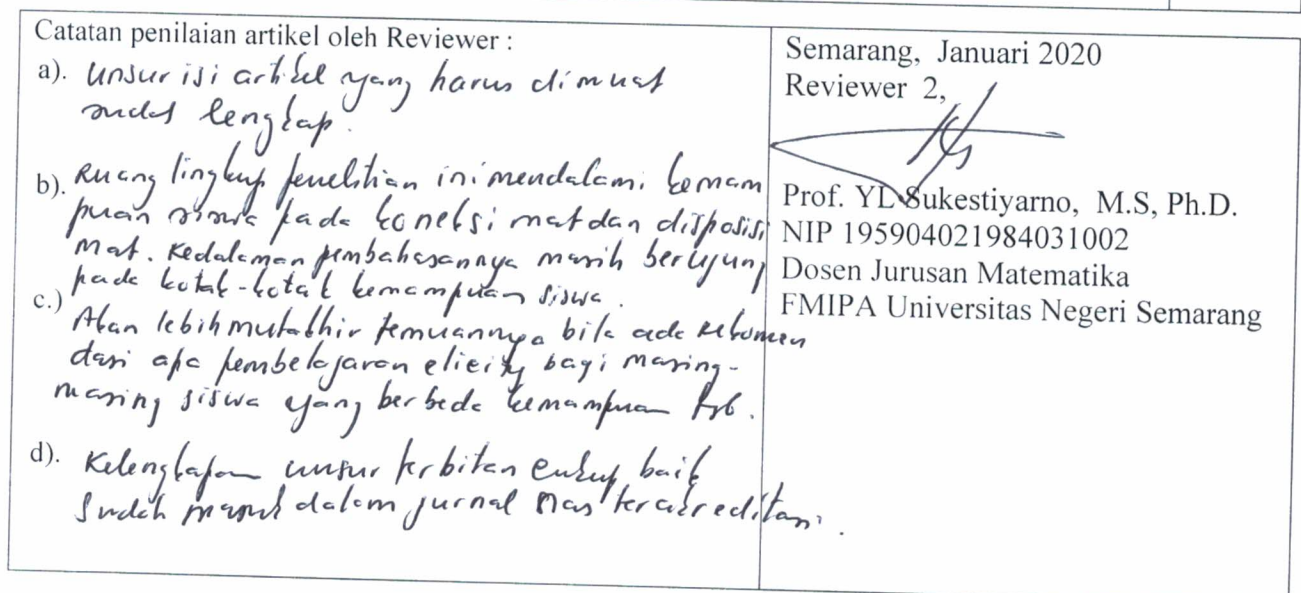 Catatan penilaian artikel oleh Reviewer :
a). Unsur isi artikel yang harus dimuat
sudah lengkap.
b). Ruang lingkup penelitian ini mendalami kemam
puan siswa pada koneksi mat dan disposisi
mat. Kedalaman pembahasannya masih berujung
pada kotak-kotak kemampuan siswa.
c.) Akan lebih mutakhir temuannya bila ada rekomen
dasi apa pembelajaran bagi masing-
masing siswa yang berbeda kemampuan tsb.
d). Kelengkapan unsur terbitan cukup baik
Sudah masuk dalam jurnal Nas terakreditasi.
Semarang, Januari 2020
Reviewer 2,
Prof. YL Sukestiyarno, M.S, Ph.D.
NIP 195904021984031002
Dosen Jurusan Matematika
FMIPA Universitas Negeri Semarang